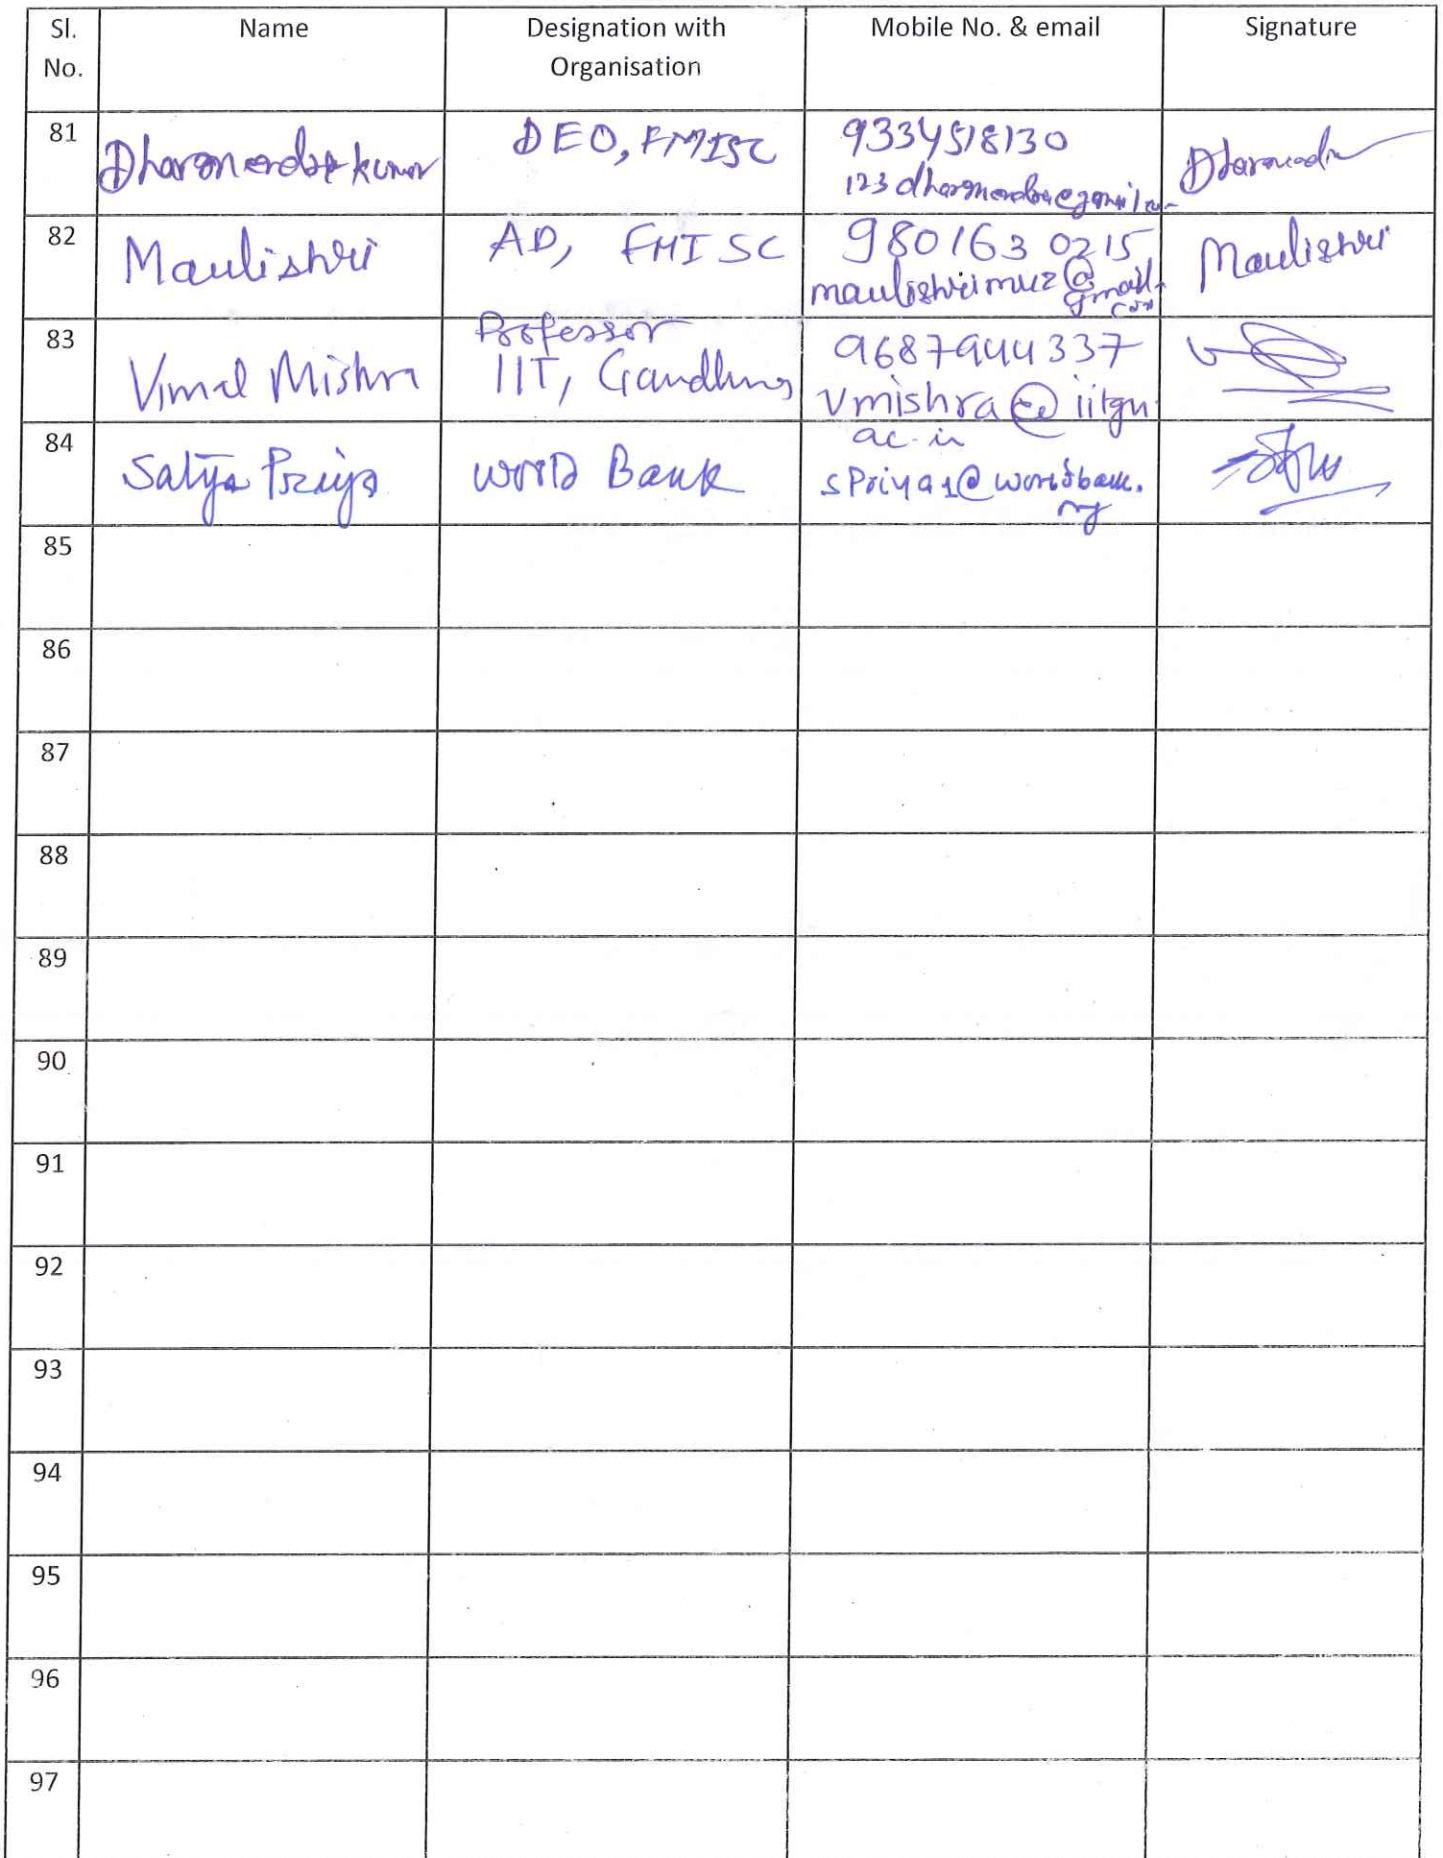 Sl. No. Name Designation with Organisation Mobile No. & email Signature
81 Dharmendra Kumar DEO, FMISC 9334518130
123dharmendra@gmail.com Dharmendra
82 Maulishri AD, FMISC 9801630215
maulishrimuz@gmail.com Maulishri
83 Vimal Mishra Professor
IIT, Gandhinag 9687944337
vmishra@iitgn.
ac.in
84 Satya Priya World Bank spriya1@worldbank.
org
85
86
87
88
89
90
91
92
93
94
95
96
97